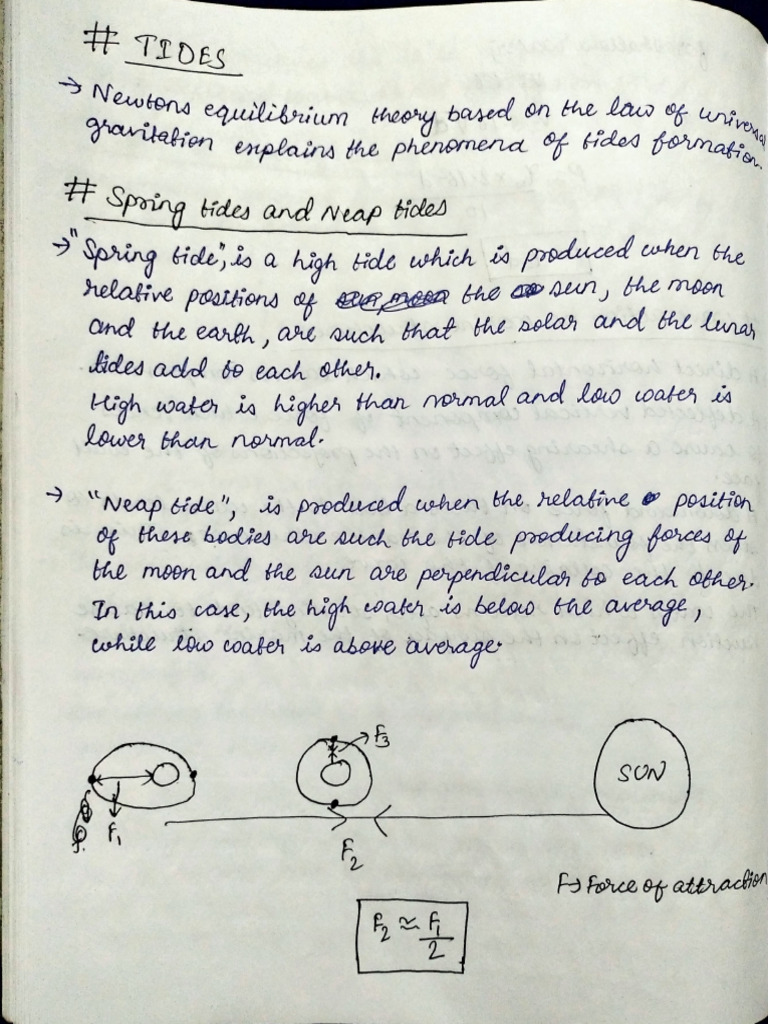 # TIDES
→ Newtons equilibrium theory based on the law of universal
gravitation explains the phenomena of tides formation.
# Spring tides and Neap tides
→ "Spring tide", is a high tide which is produced when the
relative positions of the sun, the moon
and the earth, are such that the solar and the lunar
tides add to each other.
High water is higher than normal and low water is
lower than normal.
→ "Neap tide", is produced when the relative position
of these bodies are such the tide producing forces of
the moon and the sun are perpendicular to each other.
In this case, the high water is below the average,
while low water is above average.
F3
SUN
F1
F2
F→ Force of attraction
F2 ≃ F1/2